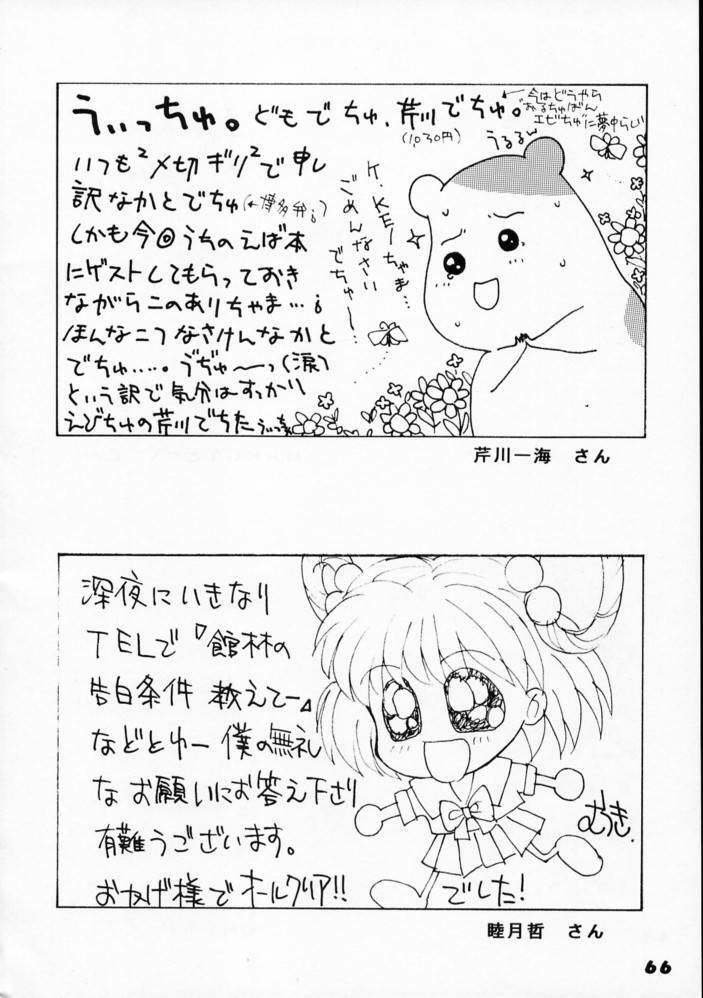 うぃっちゅ。どもでちゅ、芹川でちゅ。
←今はどうやら
おるちゅばん
エビちゅに夢中らしい
(1030円)
うるるん
いつも²〆切ギリ²で申し
訳なかとでちゅ(←博多弁)
しかも今回うちのえば本
にゲストしてもらっておき
ながらこのありちゃま…
ほんなこつなさけんなかと
でちゅ….。うぢゅ〜っ(涙)
という訳で気分はすっかり
えびちゅの芹川でちた
K.KEIちゃま…
ごめんなさい
でちゅ〜…
芹川一海 さん
深夜にいきなり
TELで『館林の
告白条件 教えてー』
などとゆー僕の無礼
なお願いにお答え下さり
有難うございます。
おかげ様でオールクリア!! でした!
むつき.
睦月哲 さん
66